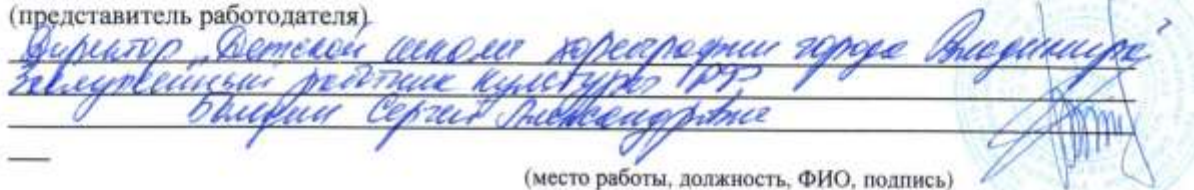 (представитель работодателя)
Директор „Детской школы хореографии города Владимира"
Заслуженный работник культуры РФ
Сергей Александрович
(место работы, должность, ФИО, подпись)